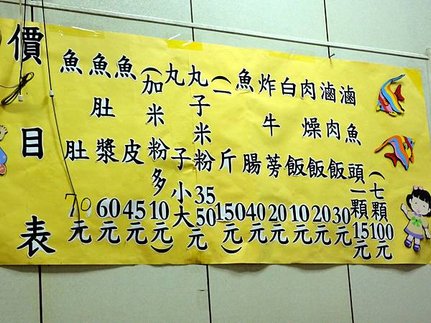 價目表
魚肚70元
魚肚漿60元
魚皮45元
(加米粉多10元)
丸子小大
丸子米粉35 50元
(一斤150元)
魚腸40元
炸牛蒡20元
白飯10元
肉燥飯20元
滷肉飯30元
滷魚頭一顆15元
(七顆100元